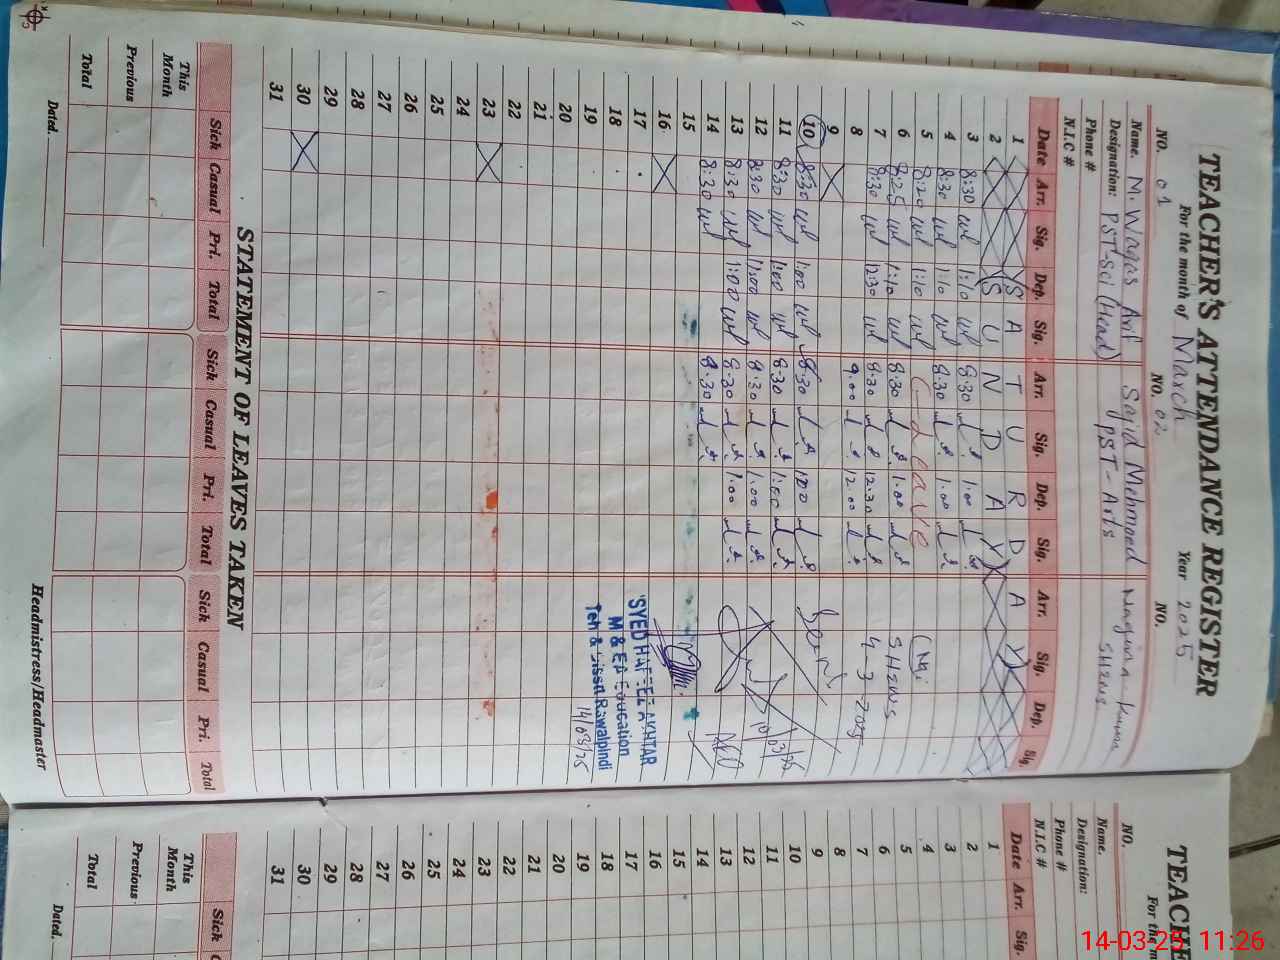 TEACHER'S ATTENDANCE REGISTER
For the month of March Year 2025
NO. 01 NO. 02 NO.
Name. M. Waqas Arif Sajid Mehmood
Designation: PST-Sci (Head) PST-Arts SHENS
Phone #
N.I.C #
Date Arr. Sig. Dep. Sig. Arr. Sig. Dep. Sig. Arr. Sig. Dep. Sig.
1 S A T U R D A Y
2 S U N D A Y
3 8:30 1:10 8:30 1:00
4 8:30 1:10 8:30 1:00
5 8:20 1:10 C-Leave
6 8:25 1:10 8:30 1:00 SHEWS
7 8:30 12:30 8:30 12:30 4-3-2025
8 9:00 12:00
9
10 8:30 1:00 8:30 1:00
11 8:30 1:00 8:30 1:00
12 8:30 11:00 8:30 1:00 10/03/25
13 8:30 1:00 8:30 1:00
14 8:30 8:30 AEO
15
16 SYED HAFEEZ AKHTAR
17 M & EA Education
18 Teh & Disst Rawalpindi
19 14/03/25
20
21
22
23
24
25
26
27
28
29
30
31
STATEMENT OF LEAVES TAKEN
Sick Casual Pri. Total Sick Casual Pri. Total Sick Casual Pri. Total
This Month
Previous
Total
Dated. Headmistress/Headmaster
TEACHE
For the m
NO.
Name.
Designation:
Phone #
N.I.C #
Date Arr. Sig.
1
2
3
4
5
6
7
8
9
10
11
12
13
14
15
16
17
18
19
20
21
22
23
24
25
26
27
28
29
30
31
Sick C
This Month
Previous
Total
Dated.
14-03-25 11:26